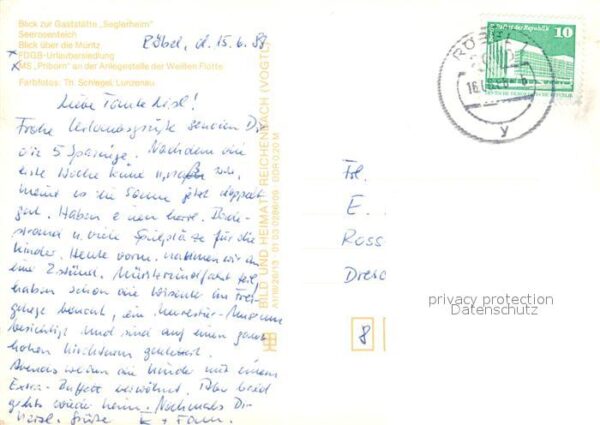 Blick zur Gaststätte „Seglerheim"
Seerosenteich
Blick über die Müritz
FDGB-Urlaubersiedlung
MS „Priborn" an der Anlegestelle der Weißen Flotte
Farbfotos: Th. Schlegel, Lunzenau
Röbel, d. 15.6.88
Liebe Tante Liesl!
Frohe Urlaubsgrüße senden Dir
die 5 Nachdem die
erste Woche keine war,
meint es die Sonne jetzt doppelt
gut. Haben einen herrl. Bade-
strand u. viele Spielplätze für die
Kinder. Heute vorm. nahmen wir an
eine 2 stünd. Müritzrundfahrt teil,
haben schon die Wisente im Frei-
gehege besucht, ein Museum
besichtigt und sind auf einen ganz
hohen Kirchturm geklettert.
Abends werden die Kinder mit einem
Extra-Buffett verwöhnt. Aber bald
gehts wieder heim. Nochmals Dir
herzl. Grüße K + Fam.
BILD UND HEIMAT REICHENBACH (VOGTL)
DDR 0,20 M
Palast der Republik
10
DDR
RÖBEL
y
Frl.
E.
Ross
Dresd
8
privacy protection
Datenschutz